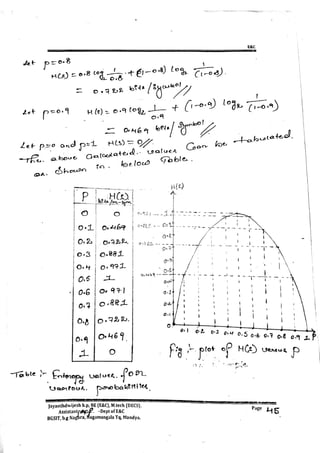 E&C
Let p=0.8
H(s) = 0.8 log 1/0.8 + (1-0.8) log2 1/(1-0.8)
= 0.722 bits/symbol //
Let p=0.9 H(s) = 0.9 log2 1/0.9 + (1-0.9) log2 1/(1-0.9)
= 0.469 bits/symbol //
Let p=0 and p=1 H(s) = 0//
The above Calculated values Can be tabulated
as shown in below Table.
P H(s)
0 0
0.1 0.469
0.2 0.722
0.3 0.881
0.4 0.971
0.5 1
0.6 0.971
0.7 0.881
0.8 0.722
0.9 0.469
1 0
H(s)
0 0.1 0.2 0.3 0.4 0.5 0.6 0.7 0.8 0.9 1 P
Fig :- plot of H(s) versus P
Table :- Entropy values for
various probabilities
Jayanthdwijesh h.p, BE (E&C), M.tech (DECS).
Assistant prof -Dept of E&C
BGSIT, b.g Nagara, Nagamangala Tq, Mandya.
Page 45